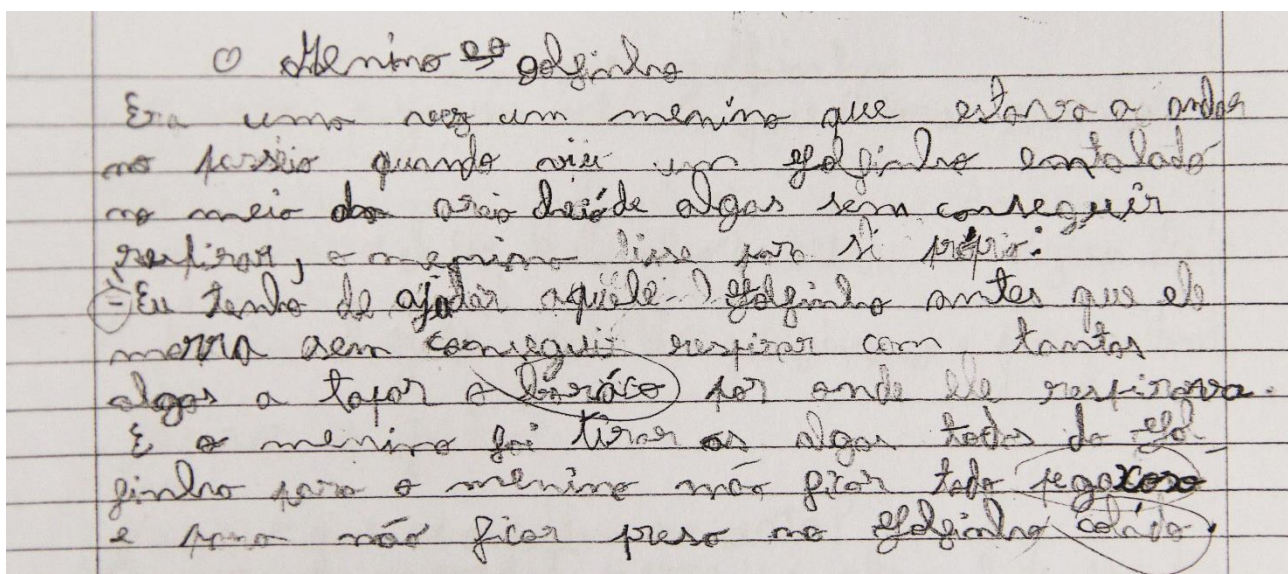 O Menino e o golfinho
Era uma vez um menino que estava a andar
no passeio quando viu um golfinho entalado
no meio da areia cheio de algas sem conseguir
respirar, o menino disse para si próprio:
- Eu tenho de ajodar aquele golfinho antes que ele
morra sem conseguir respirar com tantas
algas a tapar o boráco por onde ele respirava.
E o menino foi tirar as algas todas do gol-
finho para o menino não ficar todo pegaxoso
e para não ficar preso no golfinho coládo.